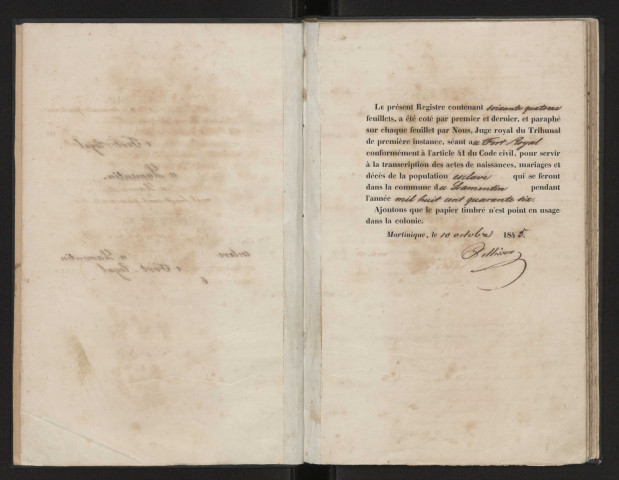 Le présent Registre contenant soixante quatorze
feuillets, a été coté par premier et dernier, et paraphé
sur chaque feuillet par Nous, Juge royal du Tribunal
de première instance, séant au Fort Royal
conformément à l'article 41 du Code civil, pour servir
à la transcription des actes de naissances, mariages et
décès de la population esclave qui se feront
dans la commune du Lamentin pendant
l'année mil huit cent quarante six.
Ajoutons que le papier timbré n'est point en usage
dans la colonie.
Martinique, le 10 octobre 1845.